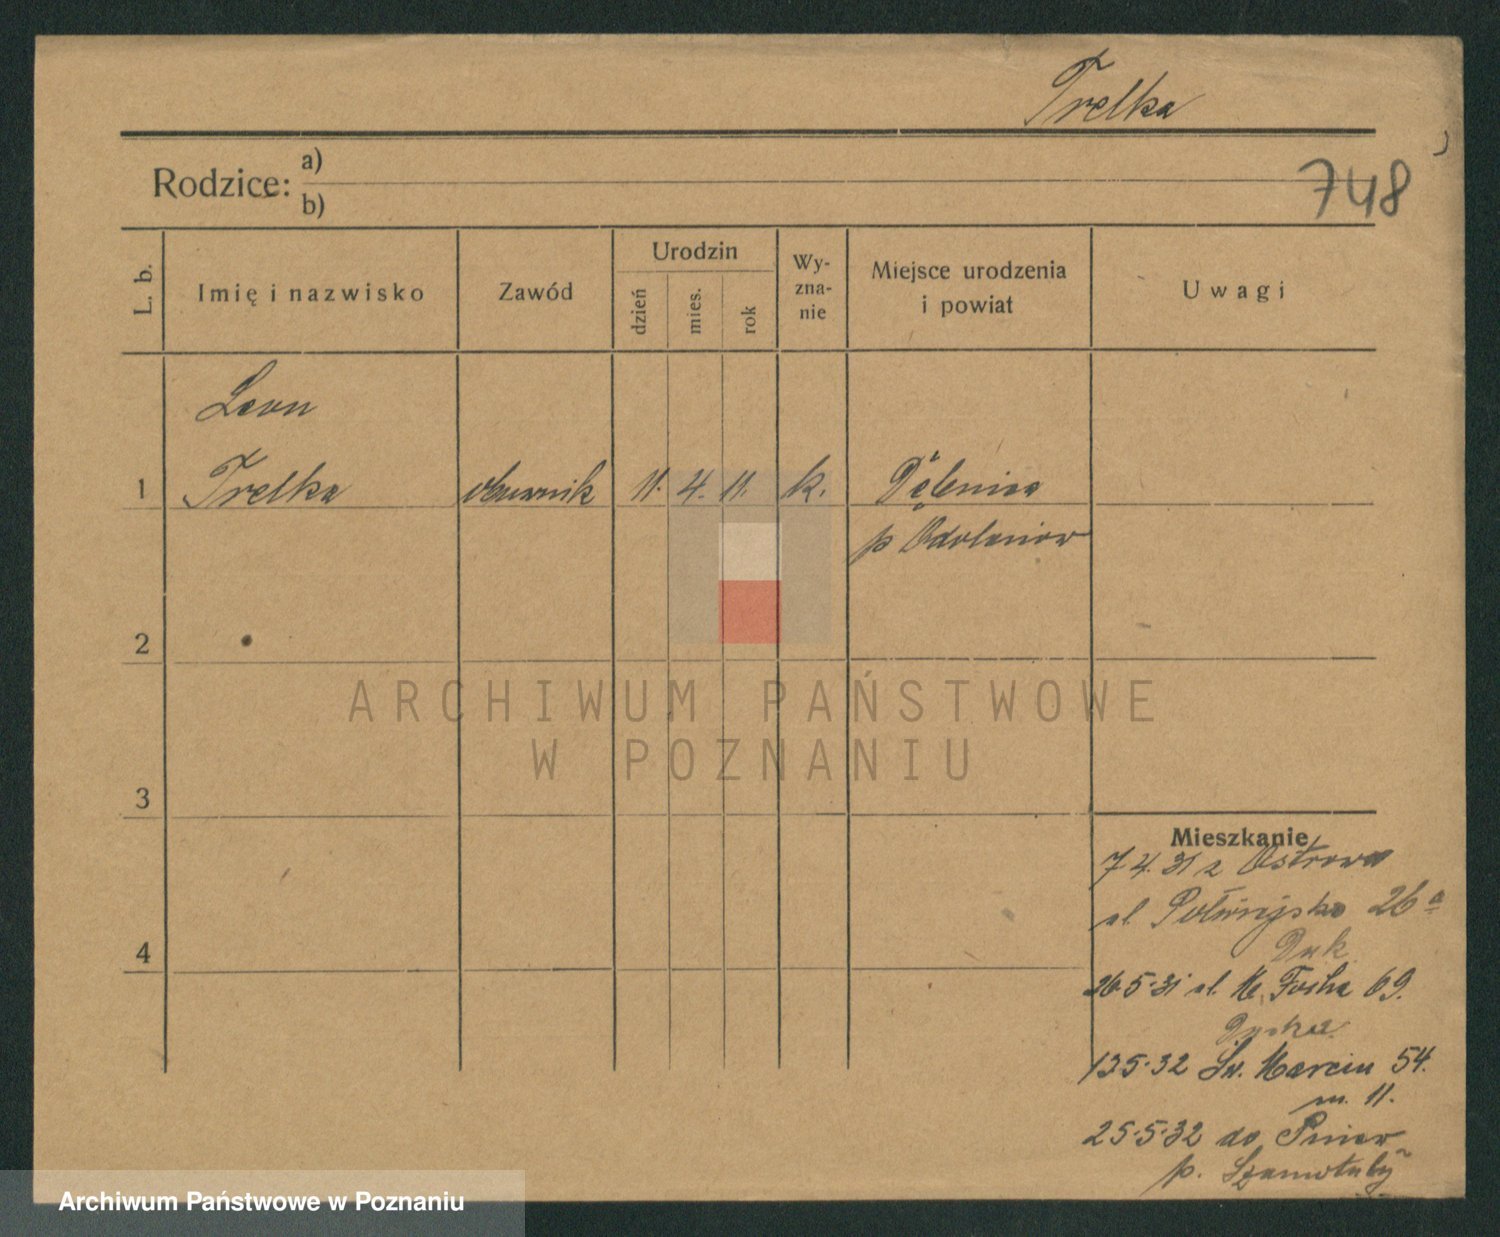 Trelka
748
Rodzice: a)
b)
L. b.
Imię i nazwisko
Zawód
Urodzin
dzień
mies.
rok
Wy-
zna-
nie
Miejsce urodzenia
i powiat
Uwagi
Leon
1 Trelka 11. 4. 11. k.
p Odolanów
2
ARCHIWUM PAŃSTWOWE
W POZNANIU
3
Mieszkanie
7 4. 31 z Ostrowa
ul 26a
4
26·5·31 ul. M. Focha 69.
13 5·32 Św. Marcin 54.
m. 11.
25·5·32 do Pniew
p. Szamotuły
Archiwum Państwowe w Poznaniu